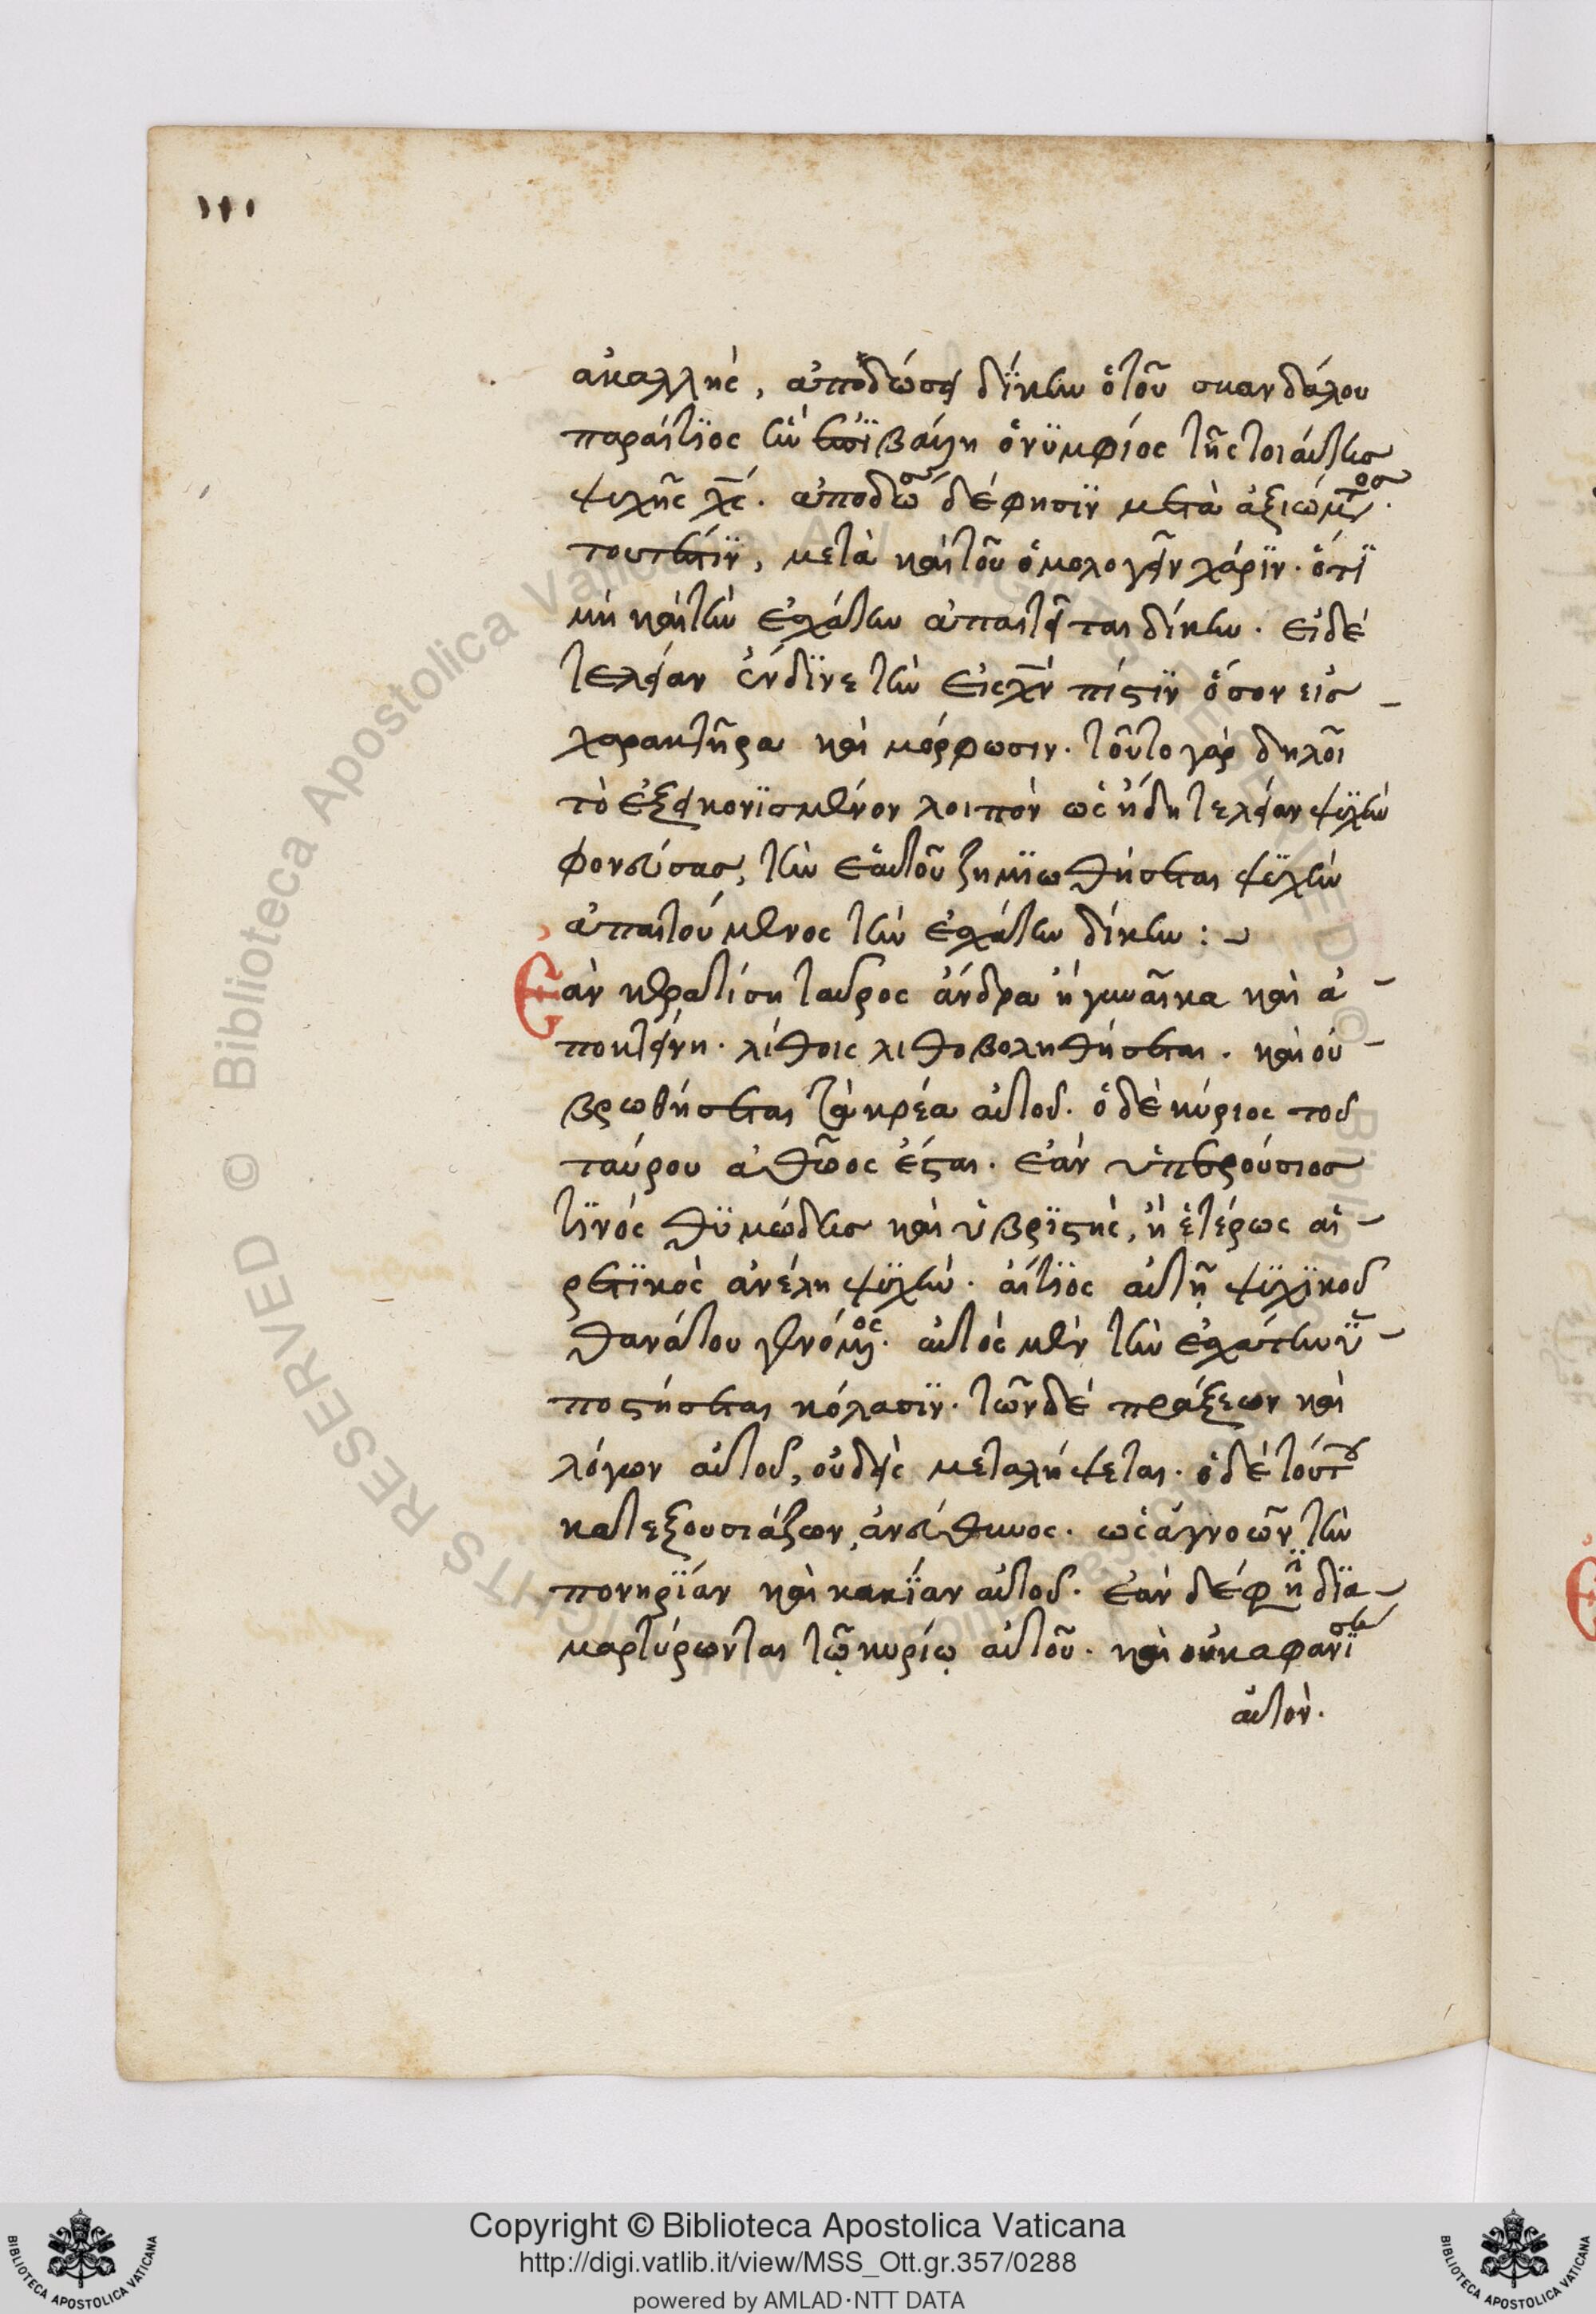 ἀκαλλὴς, ἀποδώσει δίκην ὁ τοῦ σκανδάλου
παραίτϊος ἣν ἐπϊβάλη ὁ νϋμφίος τῆς τοιαύτης
ψυχῆς χς. ἀποδώσ δέ φησϊν μετὰ ἀξιώμτος.
τουτέστϊν, μετὰ καὶ τοῦ ὁμολογεῖν χάρϊν. ὅτϊ
μὴ καὶ τὴν ἐσχάτην ἀπαιτεῖται δίκην. εἰ δέ
τελείαν ἐνδϊνε τὴν εἰς χν πίστϊν ὅσον εἰσ
χαρακτῆρα καὶ μόρφωσιν. τοῦτο γὰρ δηλοῖ
τὸ ἐξεικονϊσμένον λοιπὸν ὡς ἤδη τελείαν ψϋχὴν
φονεύσας, τὴν ἑαυτοῦ ζημϊωθήσεται ψϋχὴν
ἀπαιτούμενος τὴν ἐσχάτην δίκην :
Ἐὰν κερατίση ταῦρος ἄνδρα ἢ γυναῖκα καὶ ἀ
ποκτείνη. λίθοις λιθοβοληθήσεται. καὶ οὐ
βρωθήσεται τὰ κρέα αὐτοῦ. ὁ δὲ κύριος τοῦ
ταύρου ἀθῶος ἔσται. ἐὰν ὑπεξούσιοσ
τϊνὸς θϋμώδης καὶ ὑβρϊστὴς, ἢ ἑτέρως αἱ
ρετϊκὸς ἀνέλη ψϋχὴν. αἴτϊος αὐτῆ ψϋχϊκοῦ
θανάτου γενόμος. αὐτὸς μὲν τὴν ἐσχάτην ϋ
ποστήσεται κόλασϊν. τῶν δέ πράξεων καὶ
λόγων αὐτοῦ, οὐδεὶς μεταλήψεται. ὁ δέ τούτου
κατεξουσιάζων, ἀνεύθυνος. ὡς ἀγνοῶν τὴν
πονηρϊάν καὶ κακϊαν αὐτοῦ. ἐὰν δέ φ ἢ δϊα
μαρτύρωνται τῷ κυρίῳ αὐτοῦ. καὶ οὐκ ἀφανϊσει
αὐτὸν.
Copyright © Biblioteca Apostolica Vaticana
http://digi.vatlib.it/view/MSS_Ott.gr.357/0288
powered by AMLAD·NTT DATA